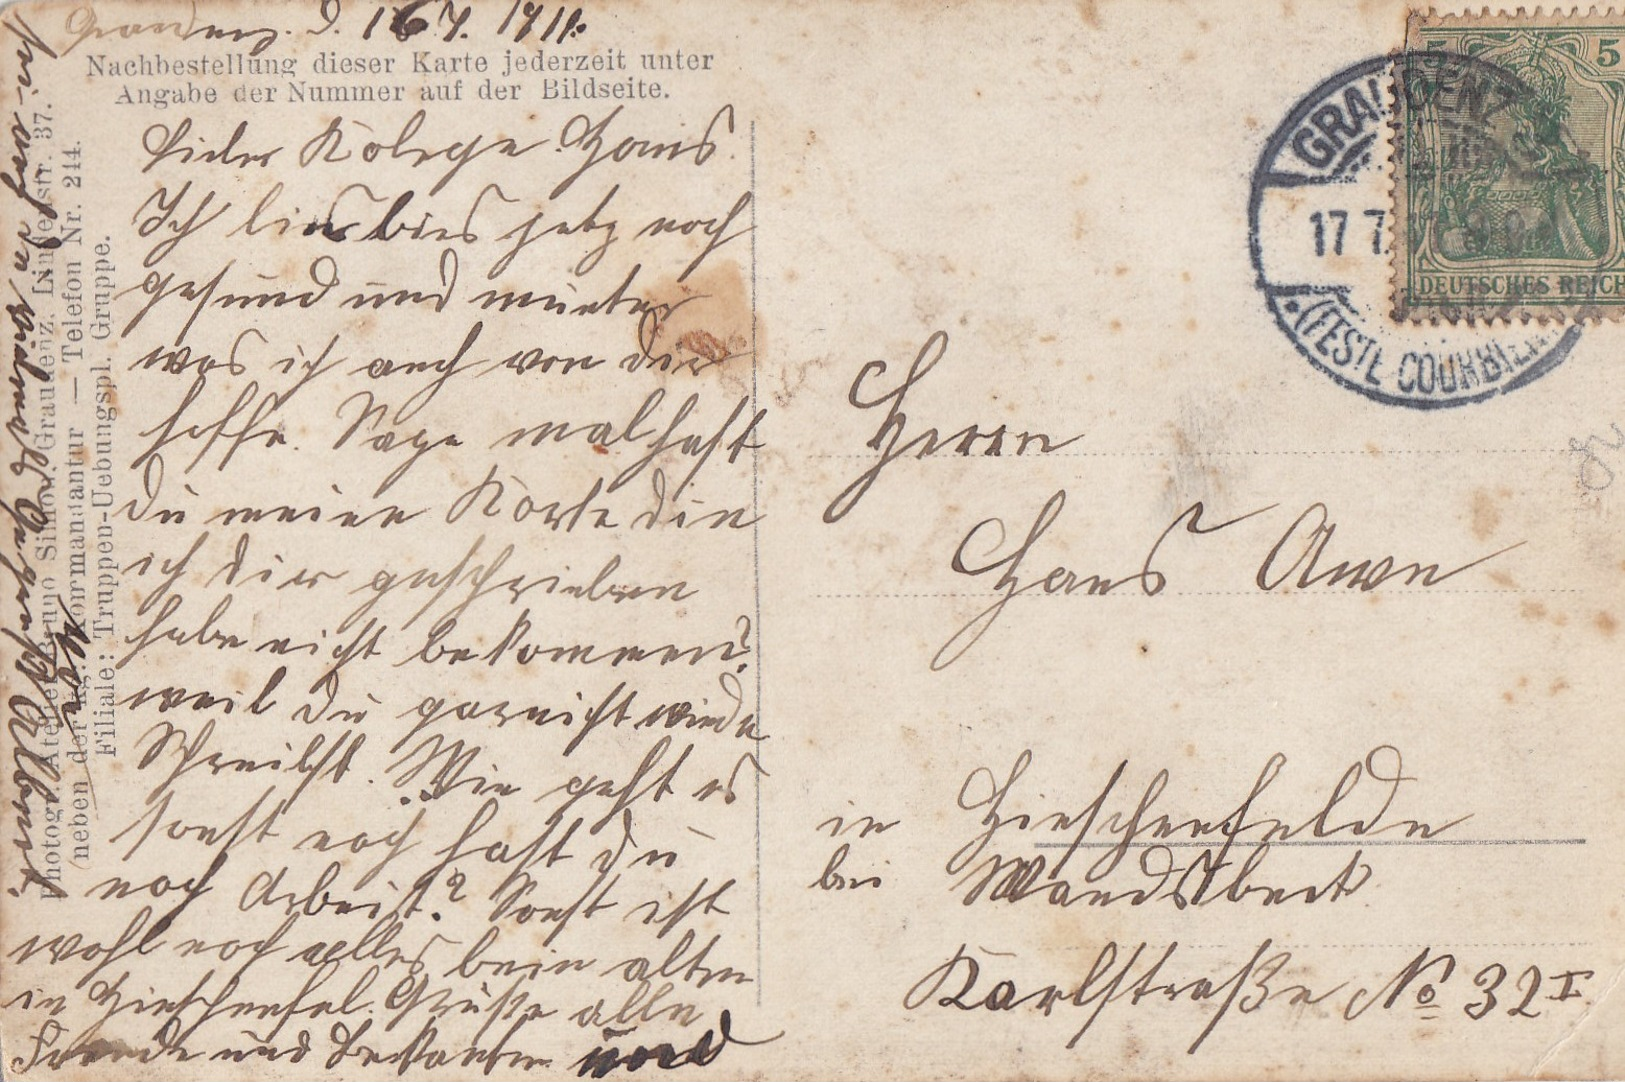 Graudenz. d. 16 7. 1911.
Nachbestellung dieser Karte jederzeit unter
Angabe der Nummer auf der Bildseite.
Lieber Kolege Hans.
Ich bin bies jetz noch
gesund und munter
was ich auch von dir
hoffe. Sage mal hast
du meine Karte die
ich dir geschrieben
habe nicht bekommen?
weil du garnicht wieder
Schreibst. Wie geht es
sonst noch hast du
noch Arbeit? Sonst ist
wohl noch alles beim alten
in Hinschenfel. Grüße alle
Freunde und Bekannten und
Photogr. Atelier Bruno Simon, Graudenz, Lindenstr. 37.
(neben der Kgl. Kommandantur — Telefon Nr. 244.
Filiale: Truppen-Uebungspl. Gruppe.
GRAUDENZ
17 7. 11
(FESTE COURBIERE)
5 5
DEUTSCHES REICH
Herrn
Hans
in Hinschenfelde
bei Wandsbeck
Karlstraße No 32 I.